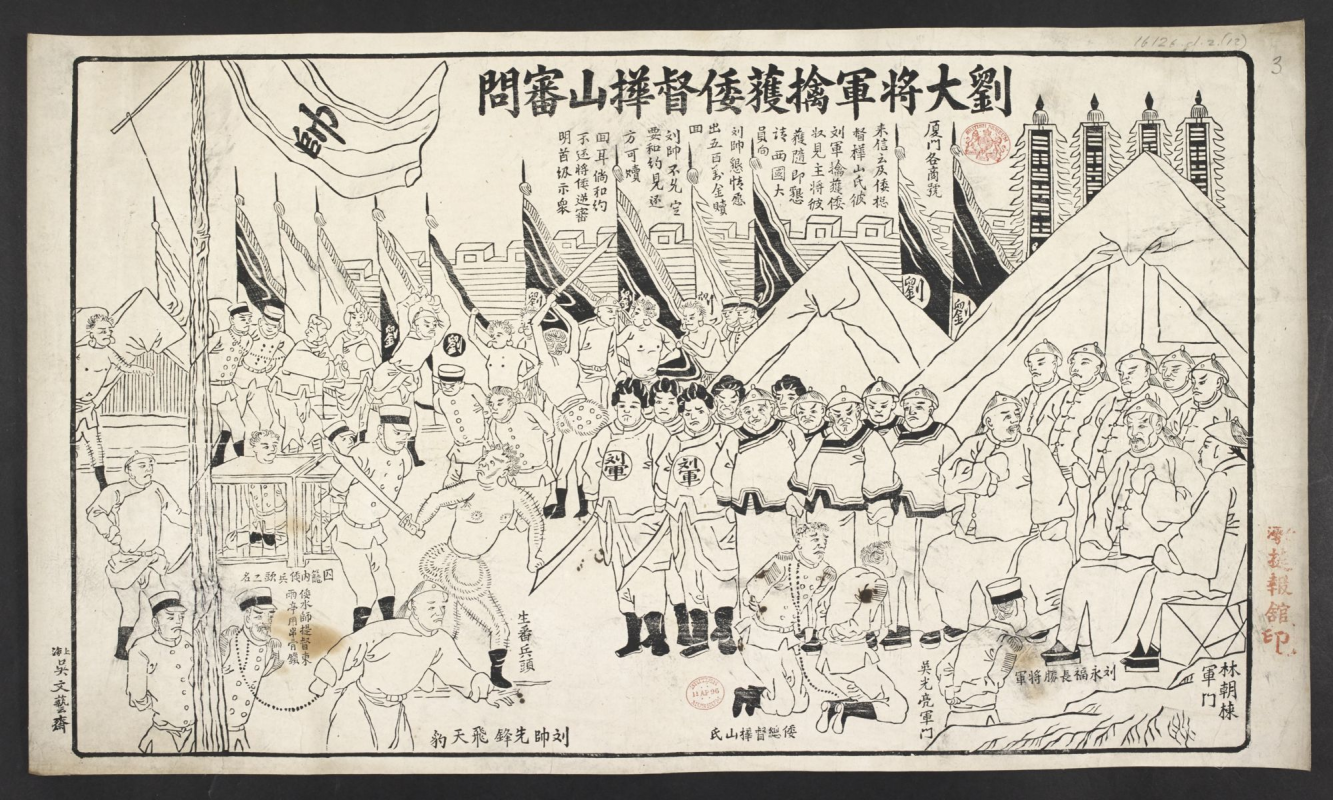 劉大將軍擒獲倭督樺山審問
厦门各商號
来信云及倭総
督樺山氏被
刘軍擒獲倭
奴見主將被
獲隨即懇
请西國大
員向
刘帥懇情愿
出五百万金贖
回
刘帅不允定
要和約見还
方可贖
回耳倘和約
不还將倭逆審
明首级示衆
帥
劉
劉
劉
劉
劉
刘軍
刘軍
囚籠内倭兵
倭水師提督東
生番兵頭
刘帅先鋒飛天豹
倭總督樺山氏
吴光亮軍门
刘永福長勝將軍
林朝棟
軍门
上海
吴文藝齋
報舘印
BRITISH MUSEUM
11 AP 96
3